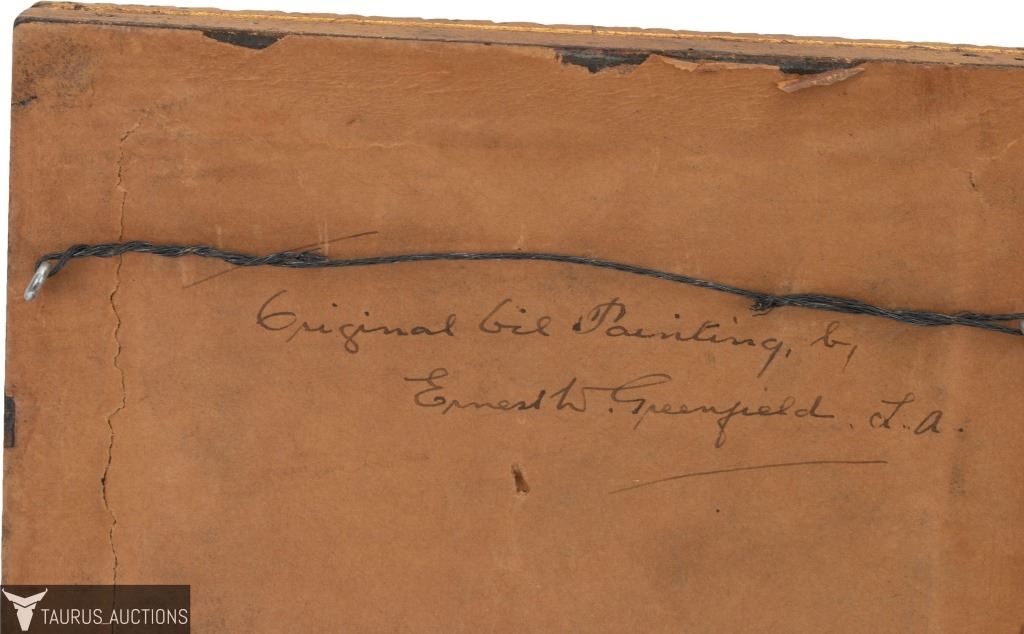 Original Oil Painting, by
Ernest W. Greenfield. L.A.
TAURUS_AUCTIONS